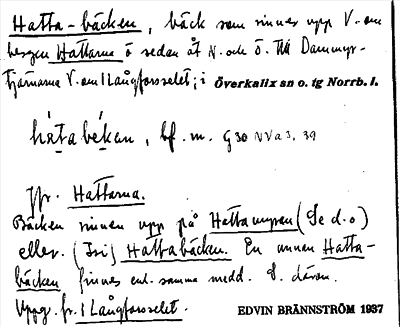 Hatta-bäcken, bäck som rinner upp V. om
bergen Hattarna ö sedan åt N. och Ö. till Dammyr-
tjärnarna V. om 1 Långforsselet; i Överkalix sn o. tg Norrb. l.
hàtabékan, bf. m. G 30 VVa3, 39
Jfr. Hattarna.
Bäcken rinner upp på Hattamyran (Se d.o)
eller (Isi) Hattabäcken. En annan Hatta-
bäcken finnes enl. samma medd. S. därom.
Uppg. fr. 1 Långforsselet.
EDVIN BRÄNNSTRÖM 1937